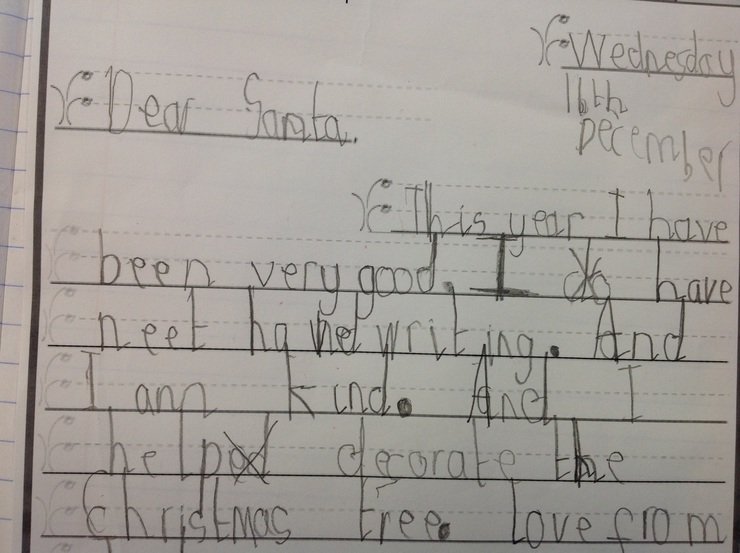 Wednesday
16th
December
Dear Santa.
This year I have
been very good. I have
neet writing. And
I am kind. And I
help decorate the
Christmas tree. Love from